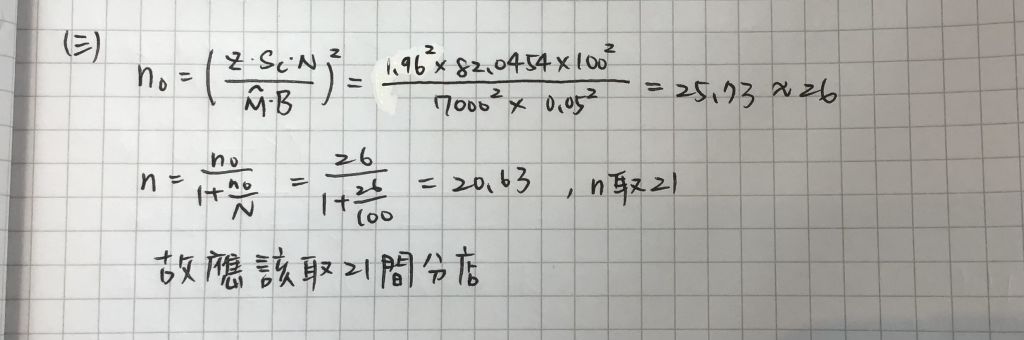 (三)
n₀ = (Z·Sc·N / M̂·B)² = 1.96² × 82.0454 × 100² / 7000² × 0.05² = 25.73 ≈ 26
n = n₀ / 1+n₀/N = 26 / 1+26/100 = 20.63 , n取21
故應該取21間分店